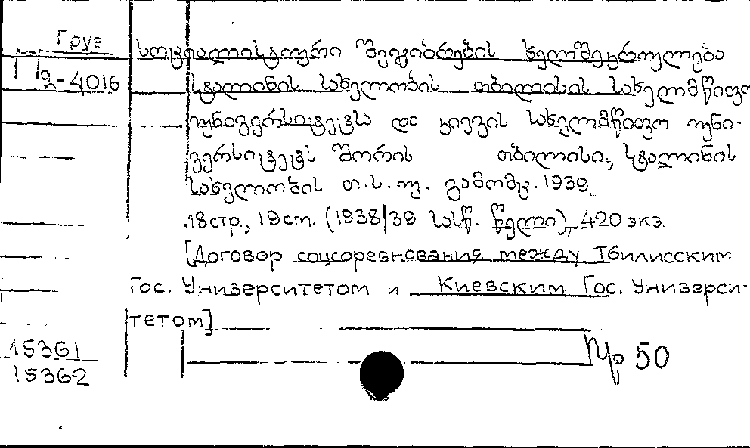 Груз
12-4016
სოციალისტური შეჯიბრების ხელშეკრულება
სტალინის სახელობის თბილისის სახელმწიფო
უნივერსიტეტსა და კიევის სახელმწიფო უნი-
ვერსიტეტს შორის თბილისი, სტალინის
სახელობის თ.ს.უ. გამომც. 1939
18стр., 19см. (1938/39 სასწ. წელი), 420 экз.
[Договор соцсоревнования между Тбилисским
Гос. Университетом и Киевским Гос. Универси-
тетом]
15361
15362
Пр 50